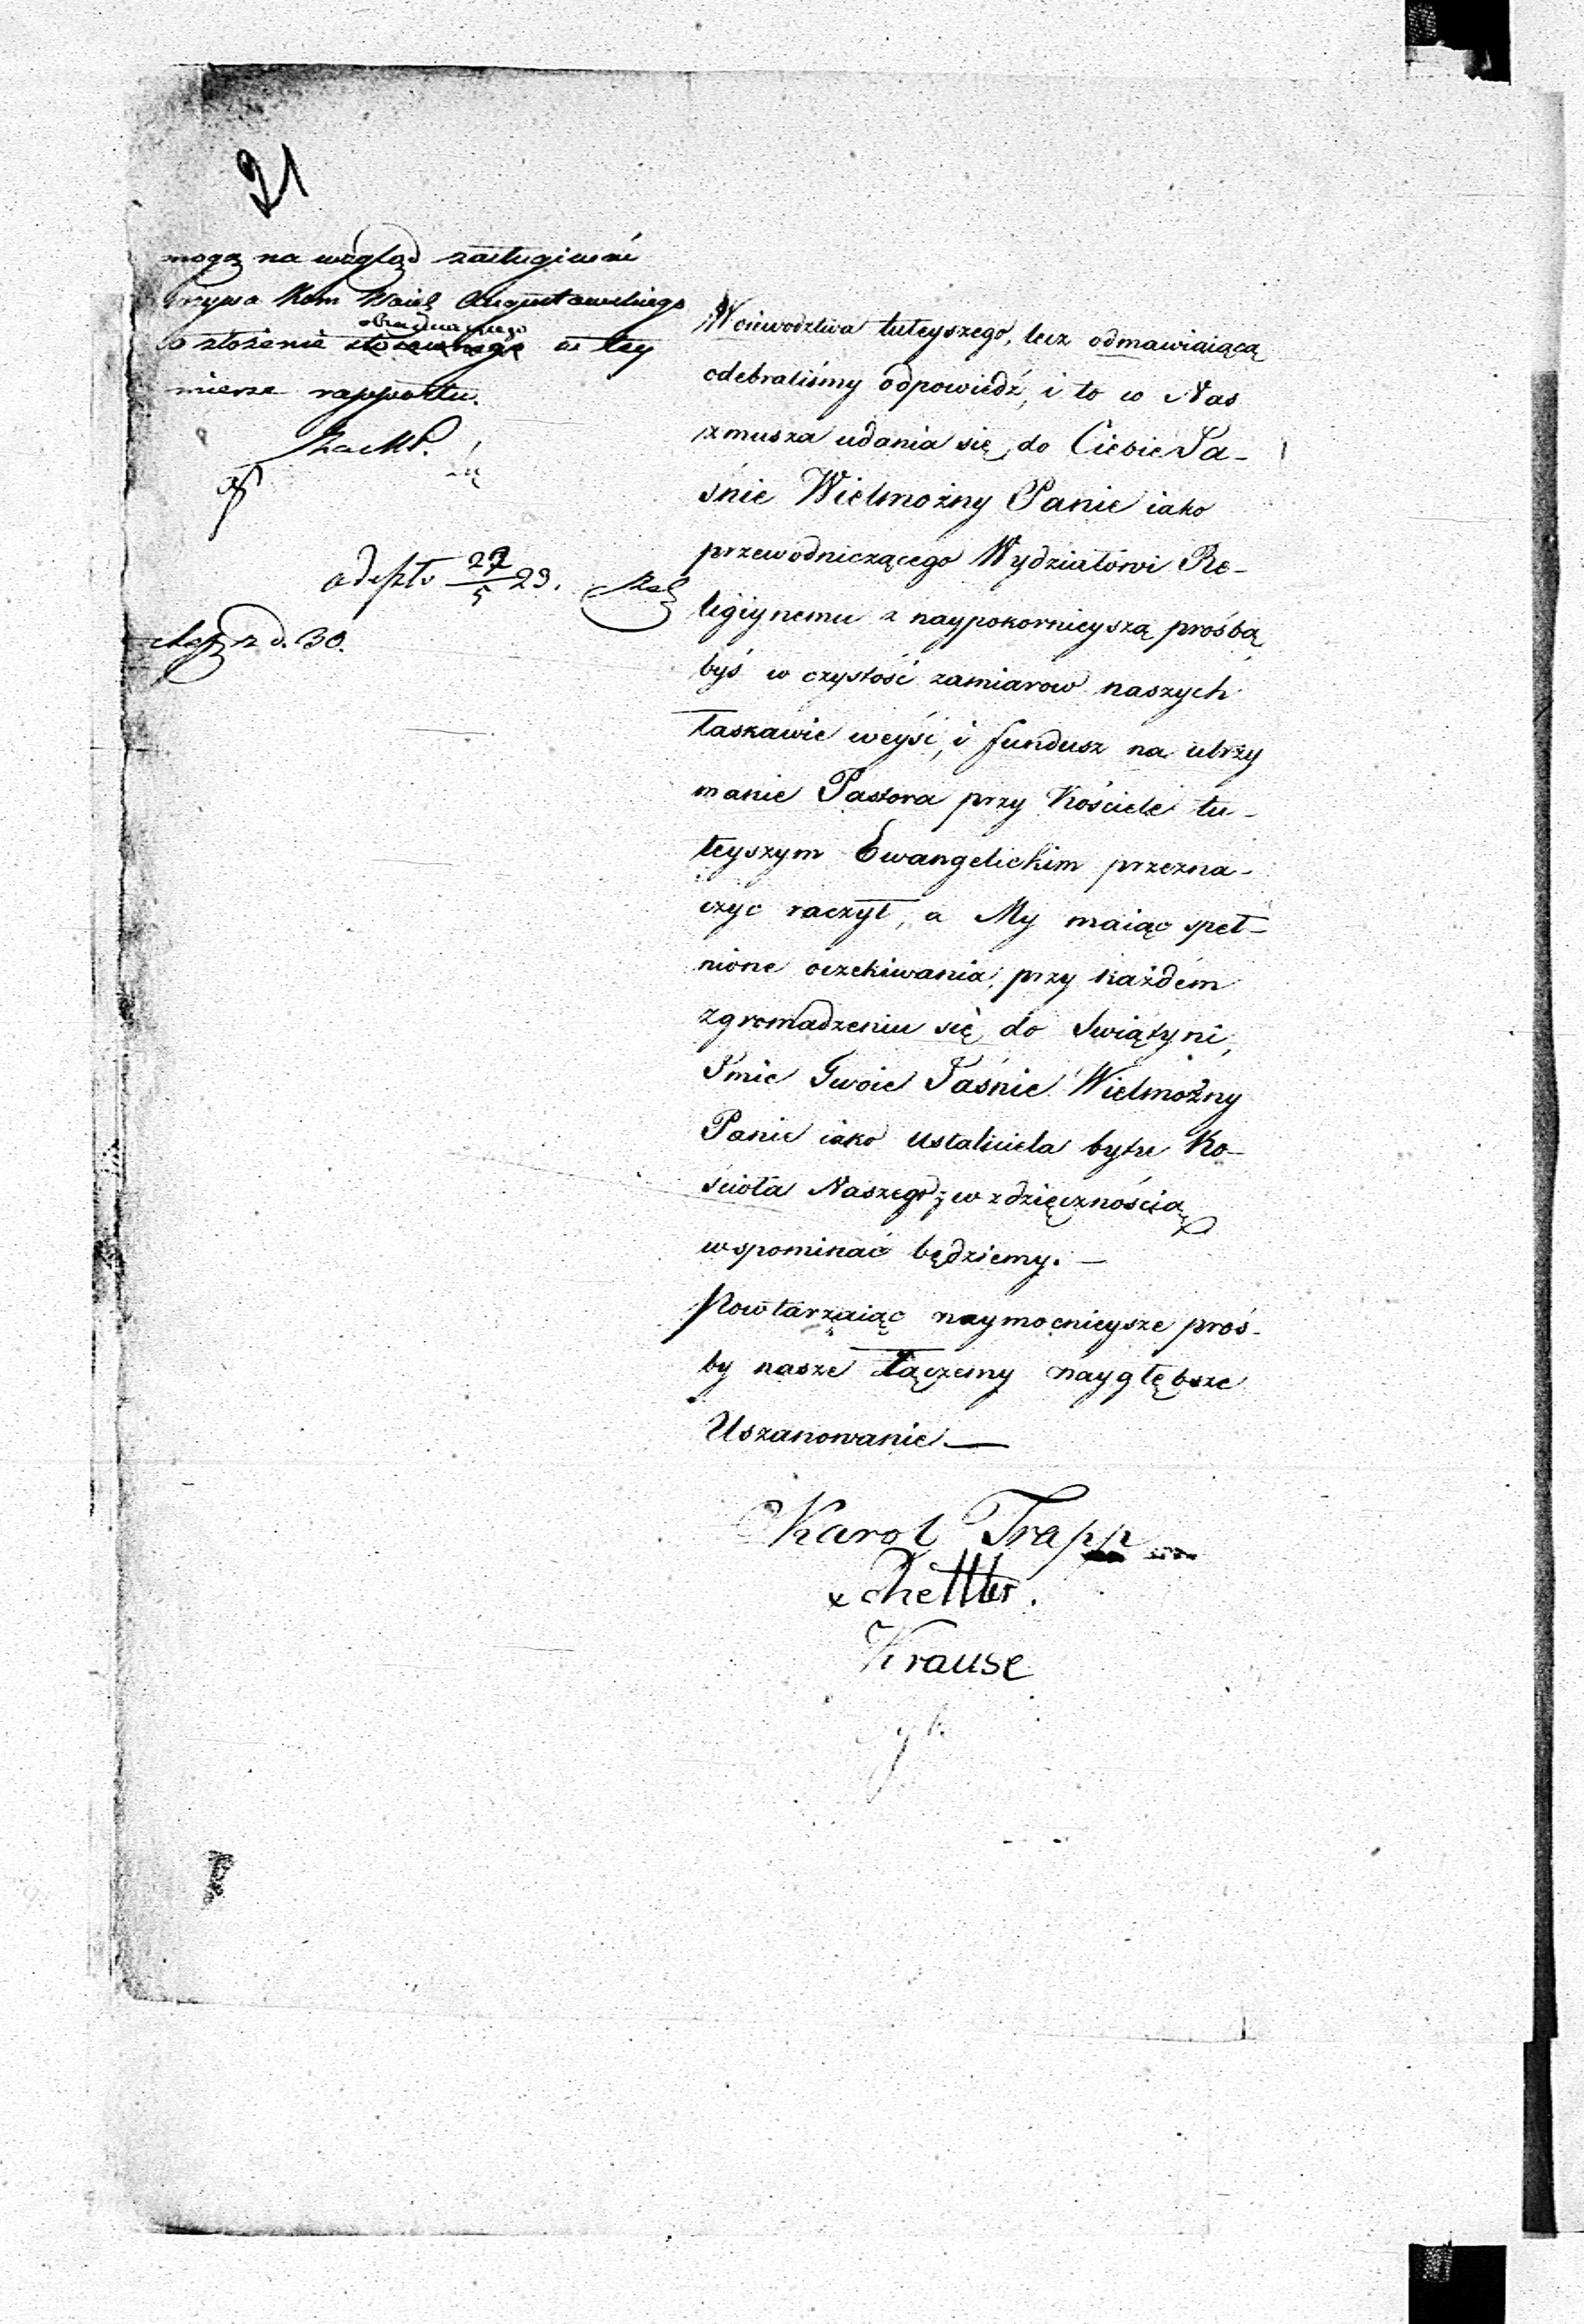 21
mogą na wzgląd zasługiwać
wzywa Kom Woiew Augustowskiego
o złożenie stosownego w tey
mierze rapportu.
odeszło 27/5 29.
d. 30.
Woiewodztwa tuteyszego, lecz odmawiaiącą
odebraliśmy odpowiedź, i to w Nas
zmusza udania się do Ciebie Ja-
śnie Wielmożny Panie iako
przewodniczącego Wydziałowi Re-
ligiynemu z naypokornieyszą prośbą
byś w czystość zamiarow naszych
łaskawie weyść, i fundusz na utrzy
manie Pastora przy Kościele tu-
teyszym Ewangelickim przezna-
czyc raczył, a My maiąc speł-
nione oczekiwania, przy każdem
zgromadzeniu się do Swiątyni,
Jmie Twoie Jaśnie Wielmożny
Panie iako Ustaliciela bytu Ko-
ścioła Naszego z wdzięcznością
wspominać będziemy. —
Powtarzaiąc naymocnieysze proś-
by nasze łączemy naygłębsze
Uszanowanie —
Karol Trapp
Krause